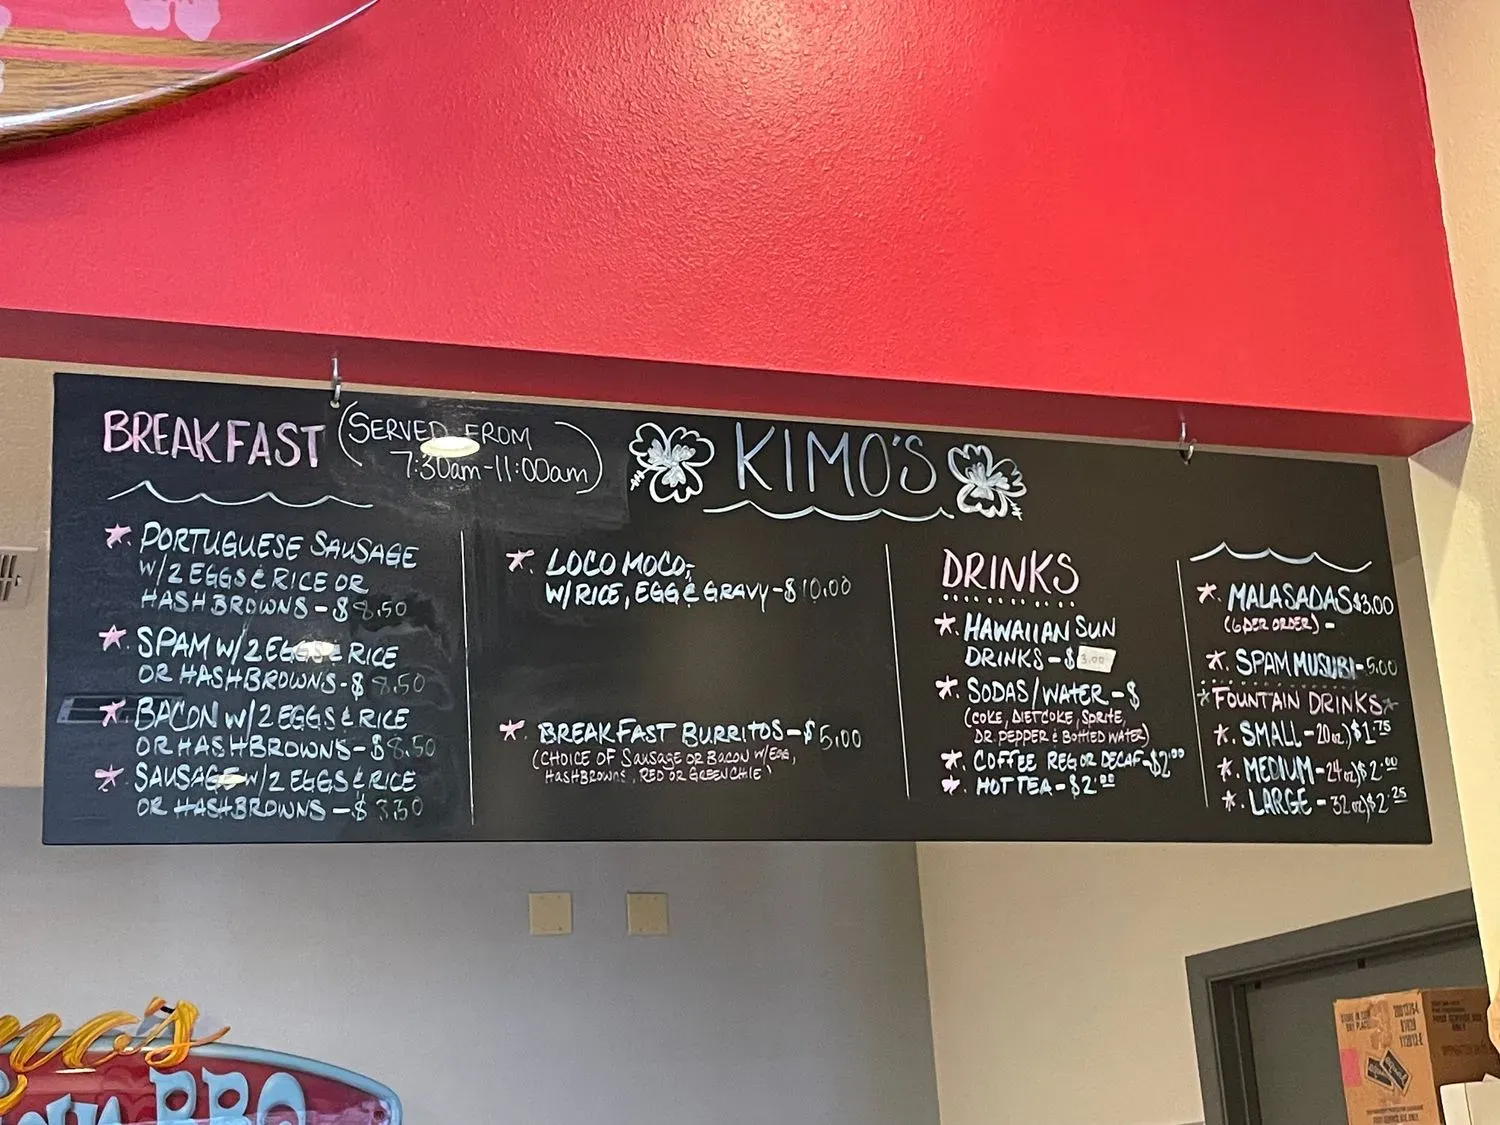 BREAKFAST
(SERVED FROM
7:30am-11:00am)
KIMO'S
* PORTUGUESE SAUSAGE
W/2 EGGS & RICE OR
HASHBROWNS - $8.50
* SPAM W/2 EGGS & RICE
OR HASHBROWNS - $8.50
* BACON W/2 EGGS & RICE
OR HASHBROWNS - $8.50
* SAUSAGE W/2 EGGS & RICE
OR HASHBROWNS - $
* LOCO MOCO-
W/RICE, EGG & GRAVY - $10.00
* BREAKFAST BURRITOS - $5.00
(CHOICE OF SAUSAGE OR BACON W/EGG,
HASHBROWNS, RED OR GREEN CHILE)
DRINKS
* HAWAIIAN SUN
DRINKS - $3.00
* SODAS/WATER - $
(COKE, DIET COKE, SPRITE,
DR. PEPPER & BOTTLED WATER)
* COFFEE REG OR DECAF - $2.00
* HOT TEA - $2.00
* MALASADAS $3.00
(6 PER ORDER) -
* SPAM MUSUBI - 5.00
*FOUNTAIN DRINKS*
* SMALL - 20oz) $1.75
* MEDIUM - 24oz) $2.00
* LARGE - 32oz) $2.25
BBQ